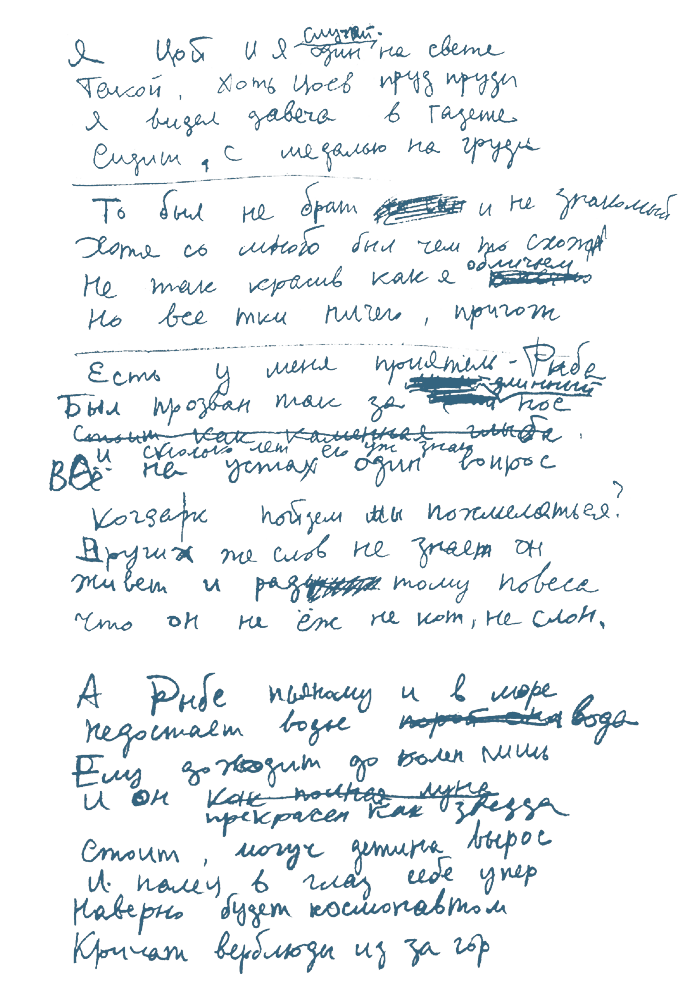 Я Цой и я случай. один на свете
Такой, хоть Цоев пруд пруди
Я видел давеча в газете
Сидит, с медалью на груди
То был не брат и не знакомый
Хотя со мною был чем то схож
Не так красив как я обличьем
Но все тки ничего, пригож
Есть у меня приятель - Рыба
Был прозван так за длинный нос
Стоит как каменная глыба,
и сколько лет его уж знаю
Всё на устах один вопрос
Когда ж пойдем мы похмелаться?
Других же слов не знает он
Живет и рад тому повеса
Что он не ёж не кот, не слон.
А Рыбе пьяному и в море
Недостает воды вода
Ему доходит до колен лишь
И он как полная луна
прекрасен как звезда
Стоит, могуч детина вырос
И палец в глаз себе упер
Наверно будет космонавтом
Кричат верблюды из за гор